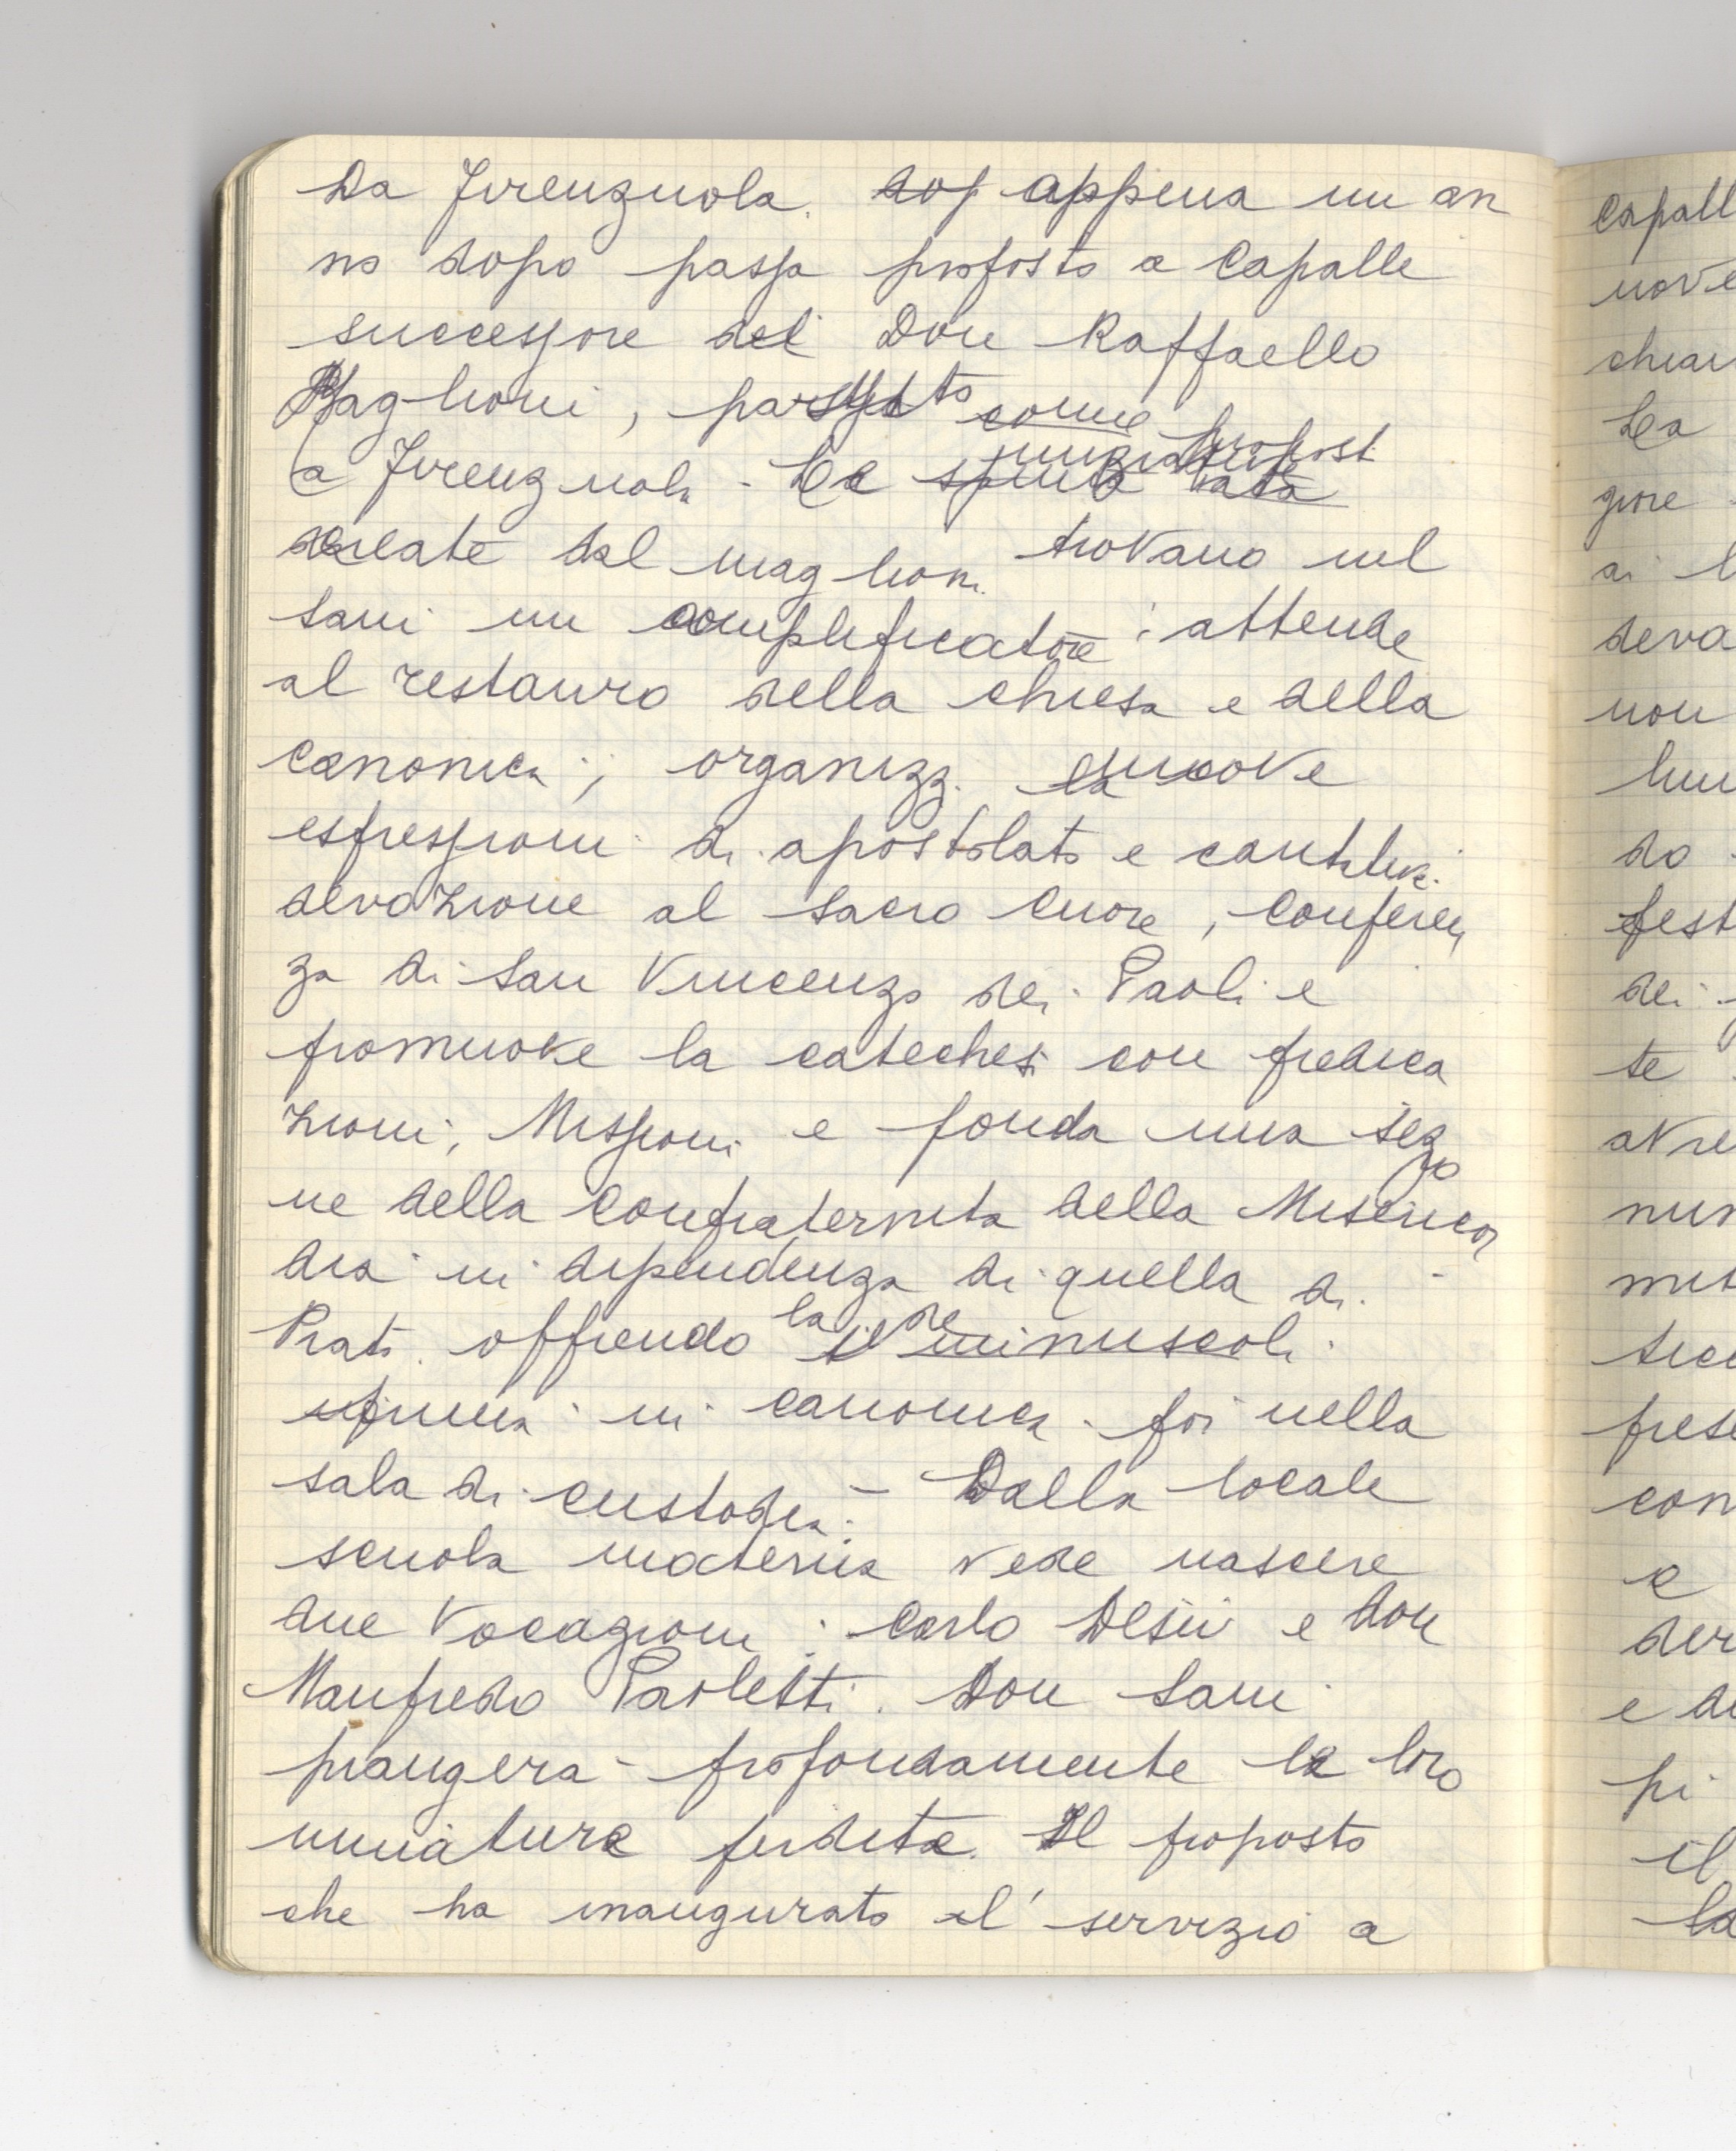 Da Firenzuola. dop appena un an
no dopo passa proposto a Capalle
successore del Don Raffaello
Maglioni, passato come propost
a Firenzuola - Le iniziative
create dal Maglioni trovano nel
Sani un amplificatore: attende
al restauro della chiesa e della
canonica; organizz. nuove
espressioni di apostolato e carit
devozione al Sacro Cuore, conferen
za di San Vincenzo dei Paoli e
promuove la catechesi con predica
zioni, Missioni e fonda una sezio
ne della Confraternita della Misericor
dia in dipendenza di quella di
Prato offrendo la sede
prima in canonica poi nella
sala di custodia. - Dalla locale
scuola materna vede nascere
due vocazioni: Carlo Desii e don
Manfredo Paoletti. Don Sani
piangera profondamente la loro
immatura perdita. Il proposto
che ha inaugurato il servizio a
capall
nove
chiar
La
giore
ai
deva
non
lun
do
fest
dei
te
avre
nun
mit
prese
con
e
der
e di
pi
il
la